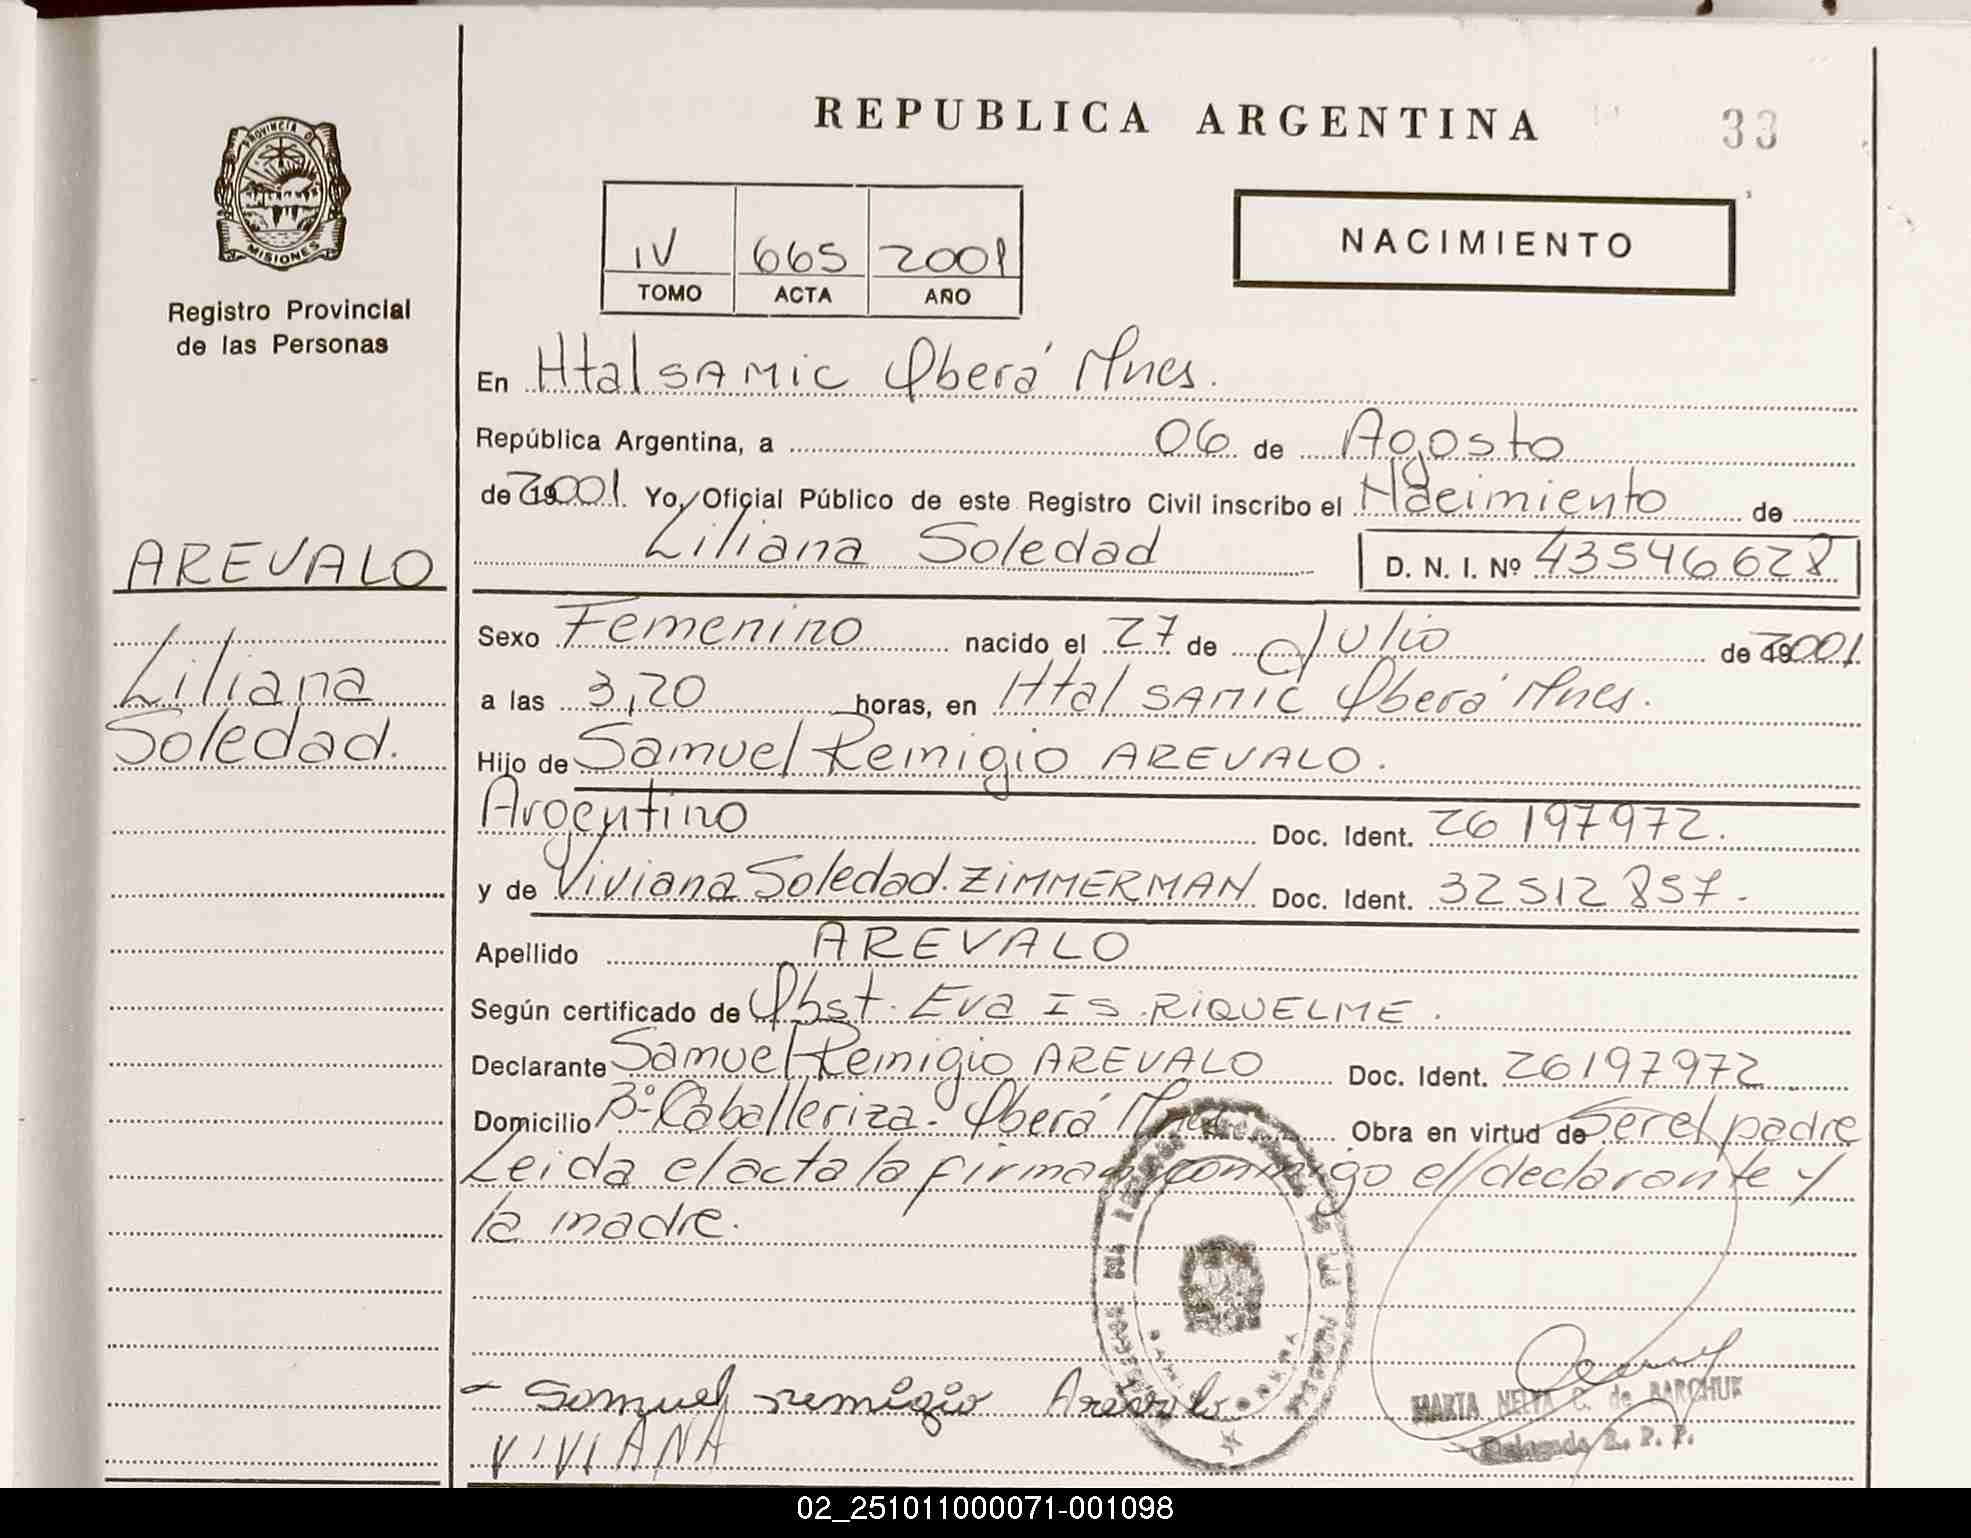 REPUBLICA ARGENTINA
33
PROVINCIA DE
MISIONES
Registro Provincial
de las Personas
IV 665 2001
TOMO ACTA AÑO
NACIMIENTO
AREVALO
Liliana
Soledad.
En Htal SAMIC Oberá Mnes.
República Argentina, a 06 de Agosto
de 2001. Yo, Oficial Público de este Registro Civil inscribo el Nacimiento de
Liliana Soledad D. N. I. Nº 43546628
Sexo Femenino nacido el 27 de Julio de 2001.
a las 3,20 horas, en Htal SAMIC Oberá Mnes.
Hijo de Samuel Remigio AREVALO.
Argentino Doc. Ident. 26197972.
y de Viviana Soledad. ZIMMERMAN Doc. Ident. 32512857.
Apellido AREVALO
Según certificado de Obst. Eva IS. RIQUELME.
Declarante Samuel Remigio AREVALO Doc. Ident. 26197972
Domicilio Bº Caballeriza. Oberá Mnes Obra en virtud de Ser el padre
Leida el acta la firman conmigo el declarante y
la madre.
Samuel remigio Arevalo
VIVIANA
MARTA NELVA C. de BARCHUK
Delegada R. P. P.
02_251011000071-001098